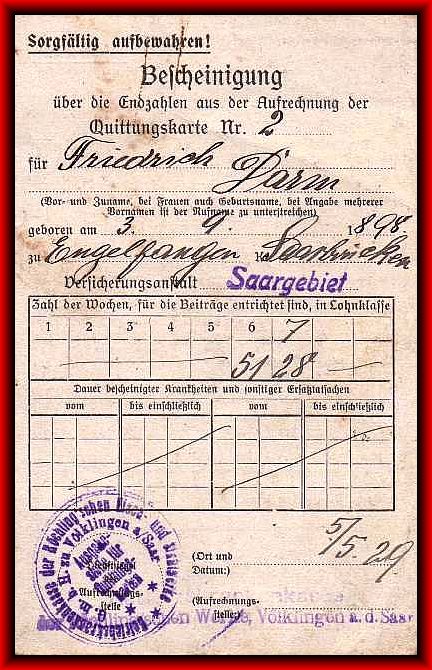 Sorgfältig aufbewahren!
Bescheinigung
über die Endzahlen aus der Aufrechnung der
Quittungskarte Nr. 2
für Friedrich Darm
(Vor- und Zuname, bei Frauen auch Geburtsname, bei Angabe mehrerer
Vornamen ist der Rufname zu unterstreichen)
geboren am 3. 9. 1898
zu Engelfangen K Saarbrücken
Versicherungsanstalt Saargebiet
Zahl der Wochen, für die Beiträge entrichtet sind, in Lohnklasse
1 2 3 4 5 6 7
51 28
Dauer bescheinigter Krankheiten und sonstiger Ersatztatsachen
vom bis einschließlich vom bis einschließlich
5/5.29
(Ort und
Datum:)
(Aufrechnungs-
stelle:)
Völklingen a. d. Saar
zu Völklingen a/Saar